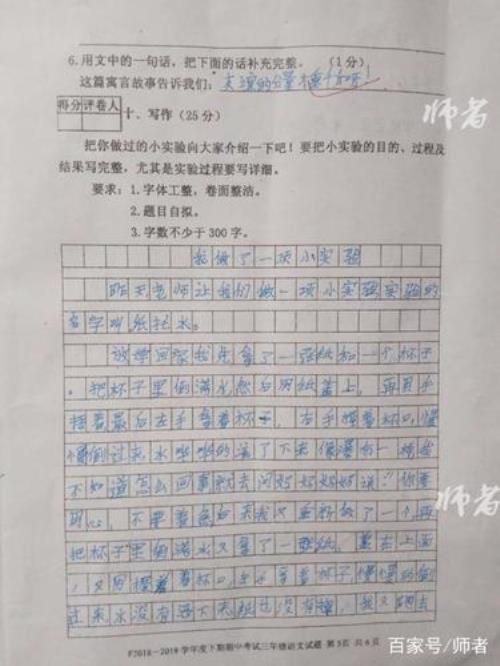 6.用文中的一句话，把下面的话补充完整。（1分）
这篇寓言故事告诉我们：
得分 评卷人
十、写作（25分）
师者
把你做过的小实验向大家介绍一下吧！要把小实验的目的、过程及
结果写完整，尤其是实验过程要写详细。
要求：1.字体工整，卷面整洁。
2.题目自拟。
3.字数不少于300字。
我做了一项小实验
昨天老师让我们做一项小实验实验的
名字叫纸托水。
放学回家我先拿了一张纸和一个杯子
。把杯子里倒满水然后用纸盖上，再用手
着最后左手拿着杯子，右手 着杯口，慢
慢倒过来水哗哗的流了下来像瀑布一样我
不知道怎么回事就去问妈妈妈妈说："你要
心，不要着急 我又重新做了一个，再
把杯子里倒满水又拿了一张纸，盖在上面
，又用 着杯口，左手拿着杯子慢慢的倒
过来水没有流下来纸也没有掉，我又
师者
F2018－2019学年度下期期中考试三年级语文试题 第5页 共6页
百家号/师者